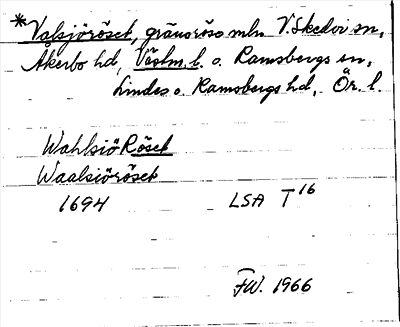 *Valsjöröset, gränsröse mln V. Skedvi sn,
Åkerbo hd, Västm. l. o. Ramsbergs sn,
Lindes o. Ramsbergs hd, Ör. l.
WahlsiöRöset
Waalsiöröset
1694 LSA T16
FW. 1966